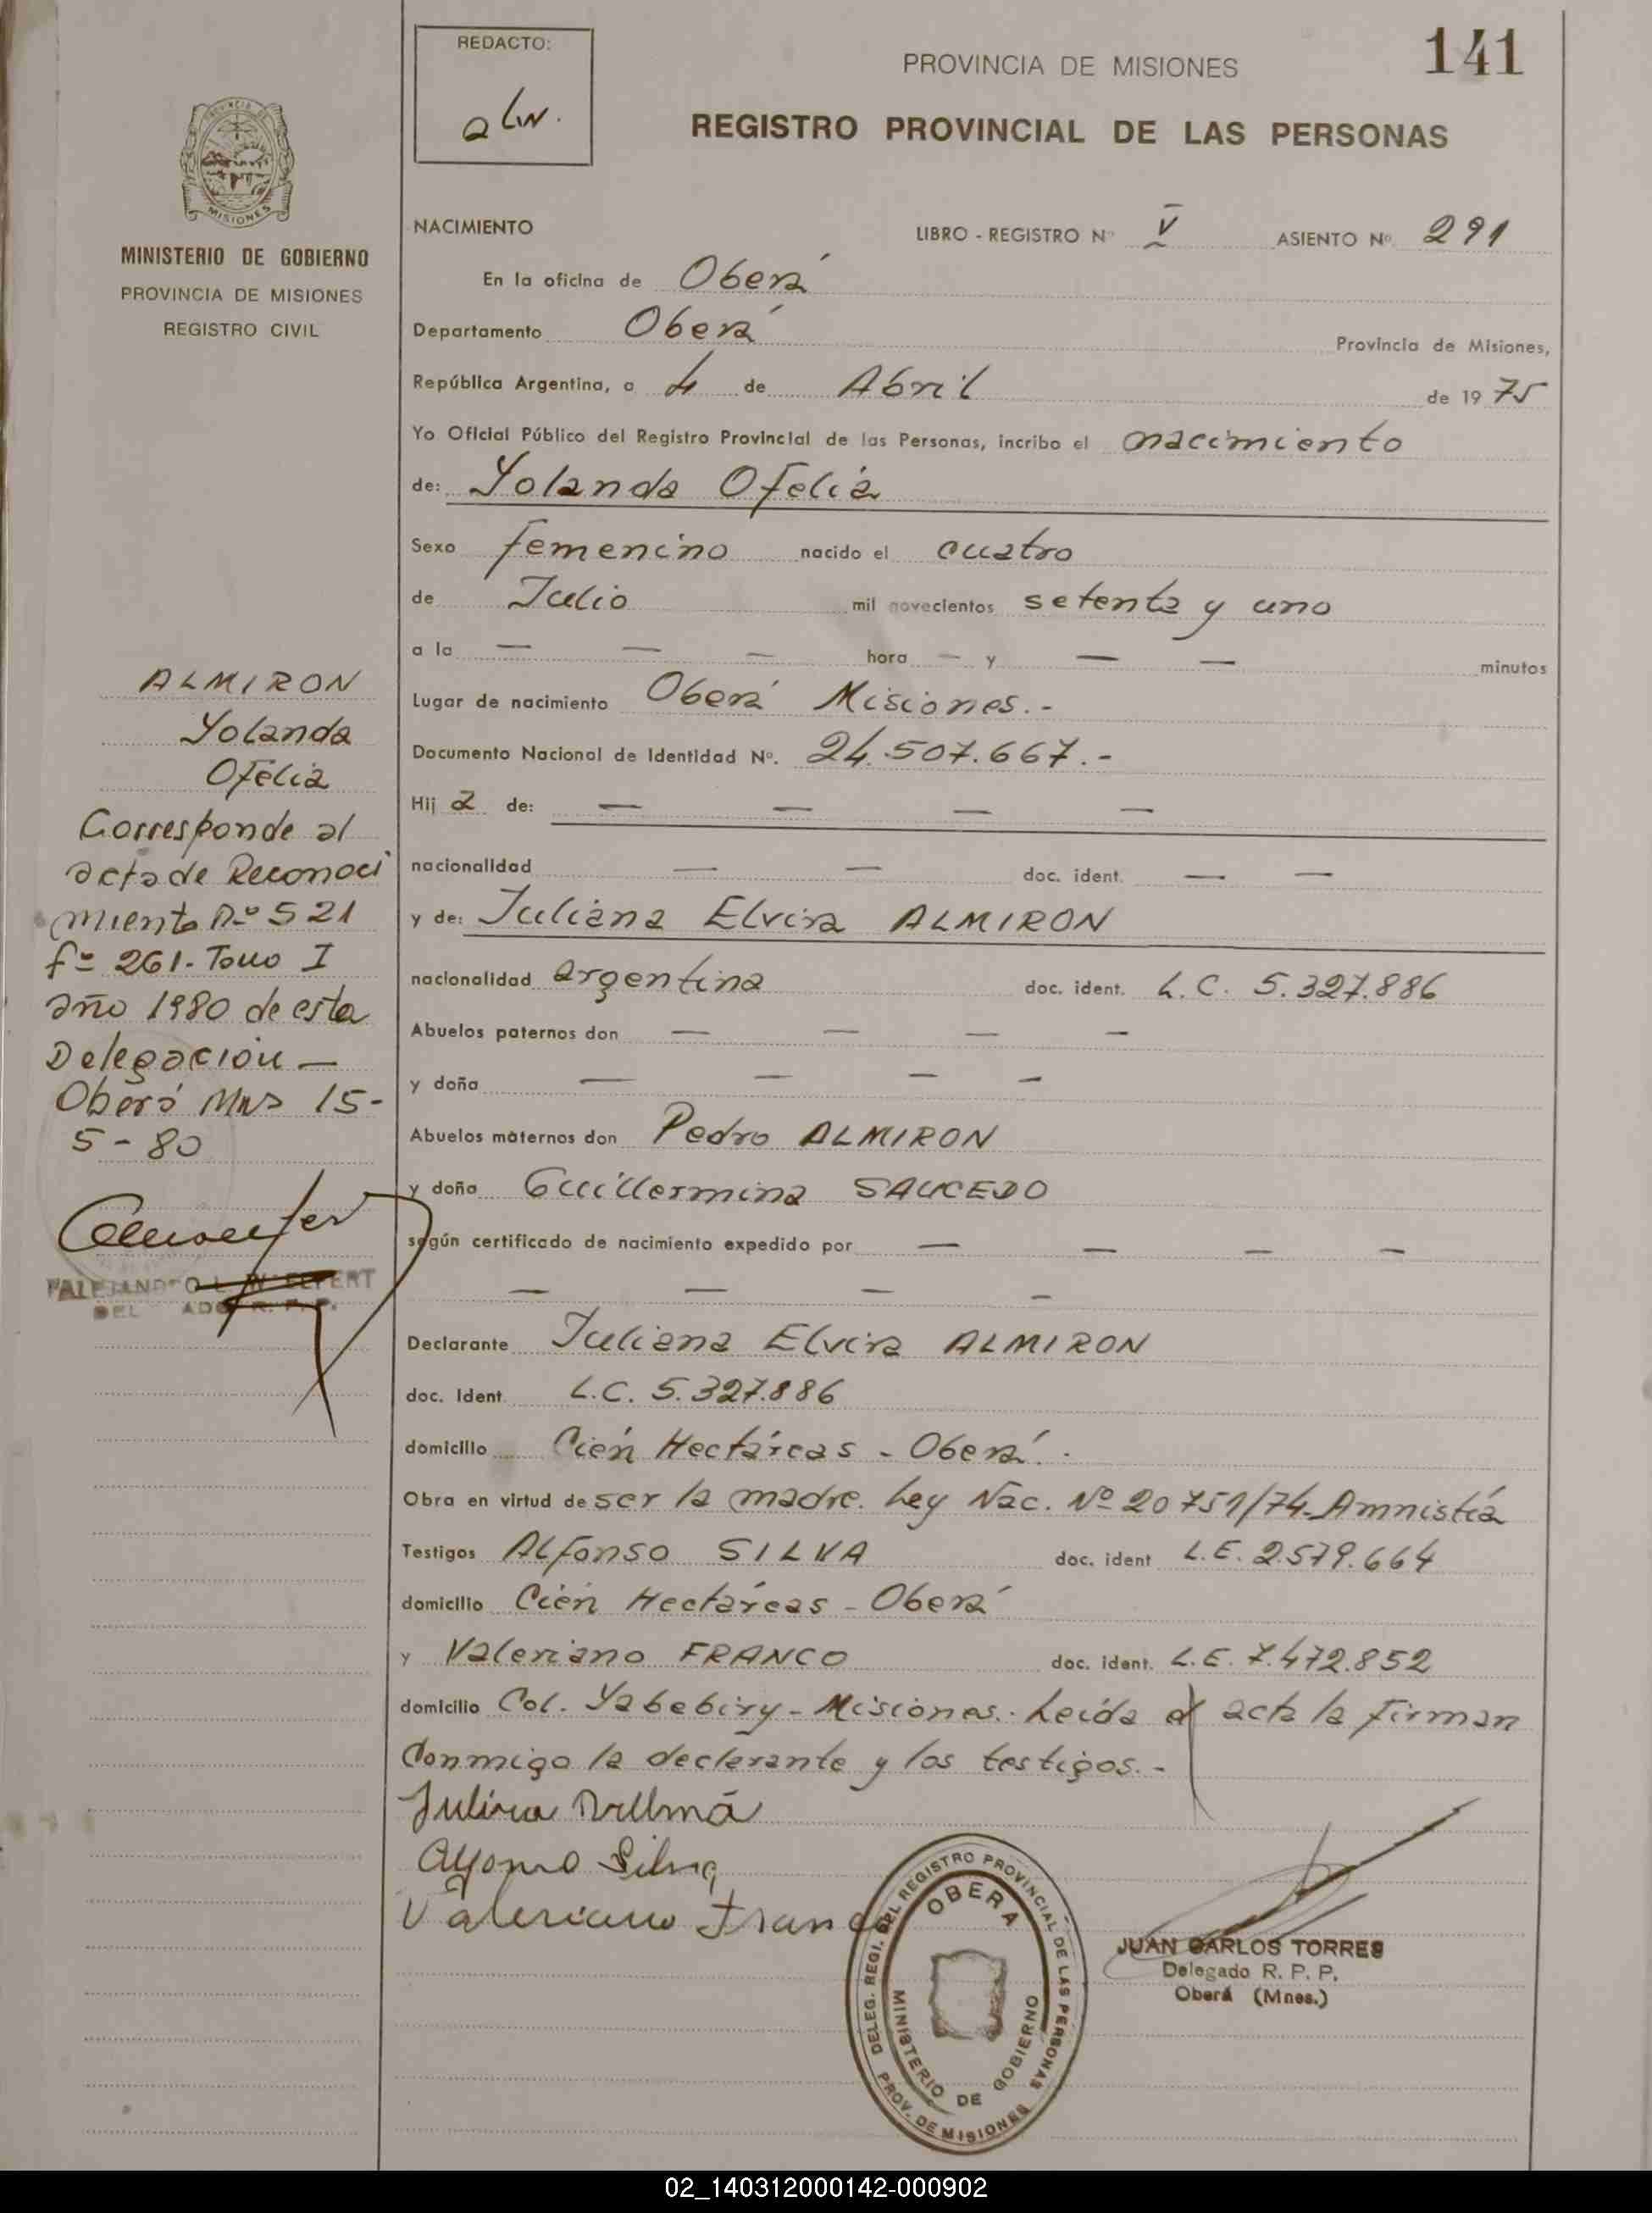 REDACTO:
PROVINCIA DE MISIONES
141
REGISTRO PROVINCIAL DE LAS PERSONAS
MISIONES
MINISTERIO DE GOBIERNO
PROVINCIA DE MISIONES
REGISTRO CIVIL
NACIMIENTO LIBRO - REGISTRO Nº V ASIENTO Nº 291
En la oficina de Oberá
Departamento Oberá Provincia de Misiones,
República Argentina, a 4 de Abril de 1975
Yo Oficial Público del Registro Provincial de las Personas, incribo el nacimiento
de: Yolanda Ofelia
Sexo femenino nacido el cuatro
de Julio mil novecientos setenta y uno
a la — — — hora — y — — minutos
Lugar de nacimiento Oberá Misiones.-
Documento Nacional de Identidad Nº. 24.507.667.-
Hij a de: — — — —
nacionalidad — — doc. ident. — —
y de: Juliana Elvira ALMIRON
nacionalidad argentina doc. ident. L.C. 5.327.886
Abuelos paternos don — — — —
y doña — — — —
Abuelos maternos don Pedro ALMIRON
y doña Guillermina SAUCEDO
según certificado de nacimiento expedido por — — — —
— — — —
Declarante Juliana Elvira ALMIRON
doc. Ident. L.C. 5.327.886
domicilio Cién Hectáreas - Oberá.
Obra en virtud de ser la madre. Ley Nac. Nº 20751/74. Amnistía
Testigos Alfonso SILVA doc. ident L.E. 2.579.664
domicilio Cién Hectáreas - Oberá
y Valeriano FRANCO doc. ident. L.E. 7.472.852
domicilio Col. Yabebiry - Misiones.- Leída el acta la firman
conmigo la declarante y los testigos.-
Alfonso Silva
Valeriano Franco
ALMIRON
Yolanda
Ofelia
Corresponde al
acta de Reconoci
miento Nº 521
fº 261. Tomo I
año 1980 de esta
Delegación —
Oberá Mns 15-
5-80
DELEG. REGI. DEL REGISTRO PROVINCIAL DE LAS PERSONAS
OBERA
MINISTERIO DE GOBIERNO
PROV. DE MISIONES
JUAN CARLOS TORRES
Delegado R. P. P.
Oberá (Mnes.)
02_140312000142-000902